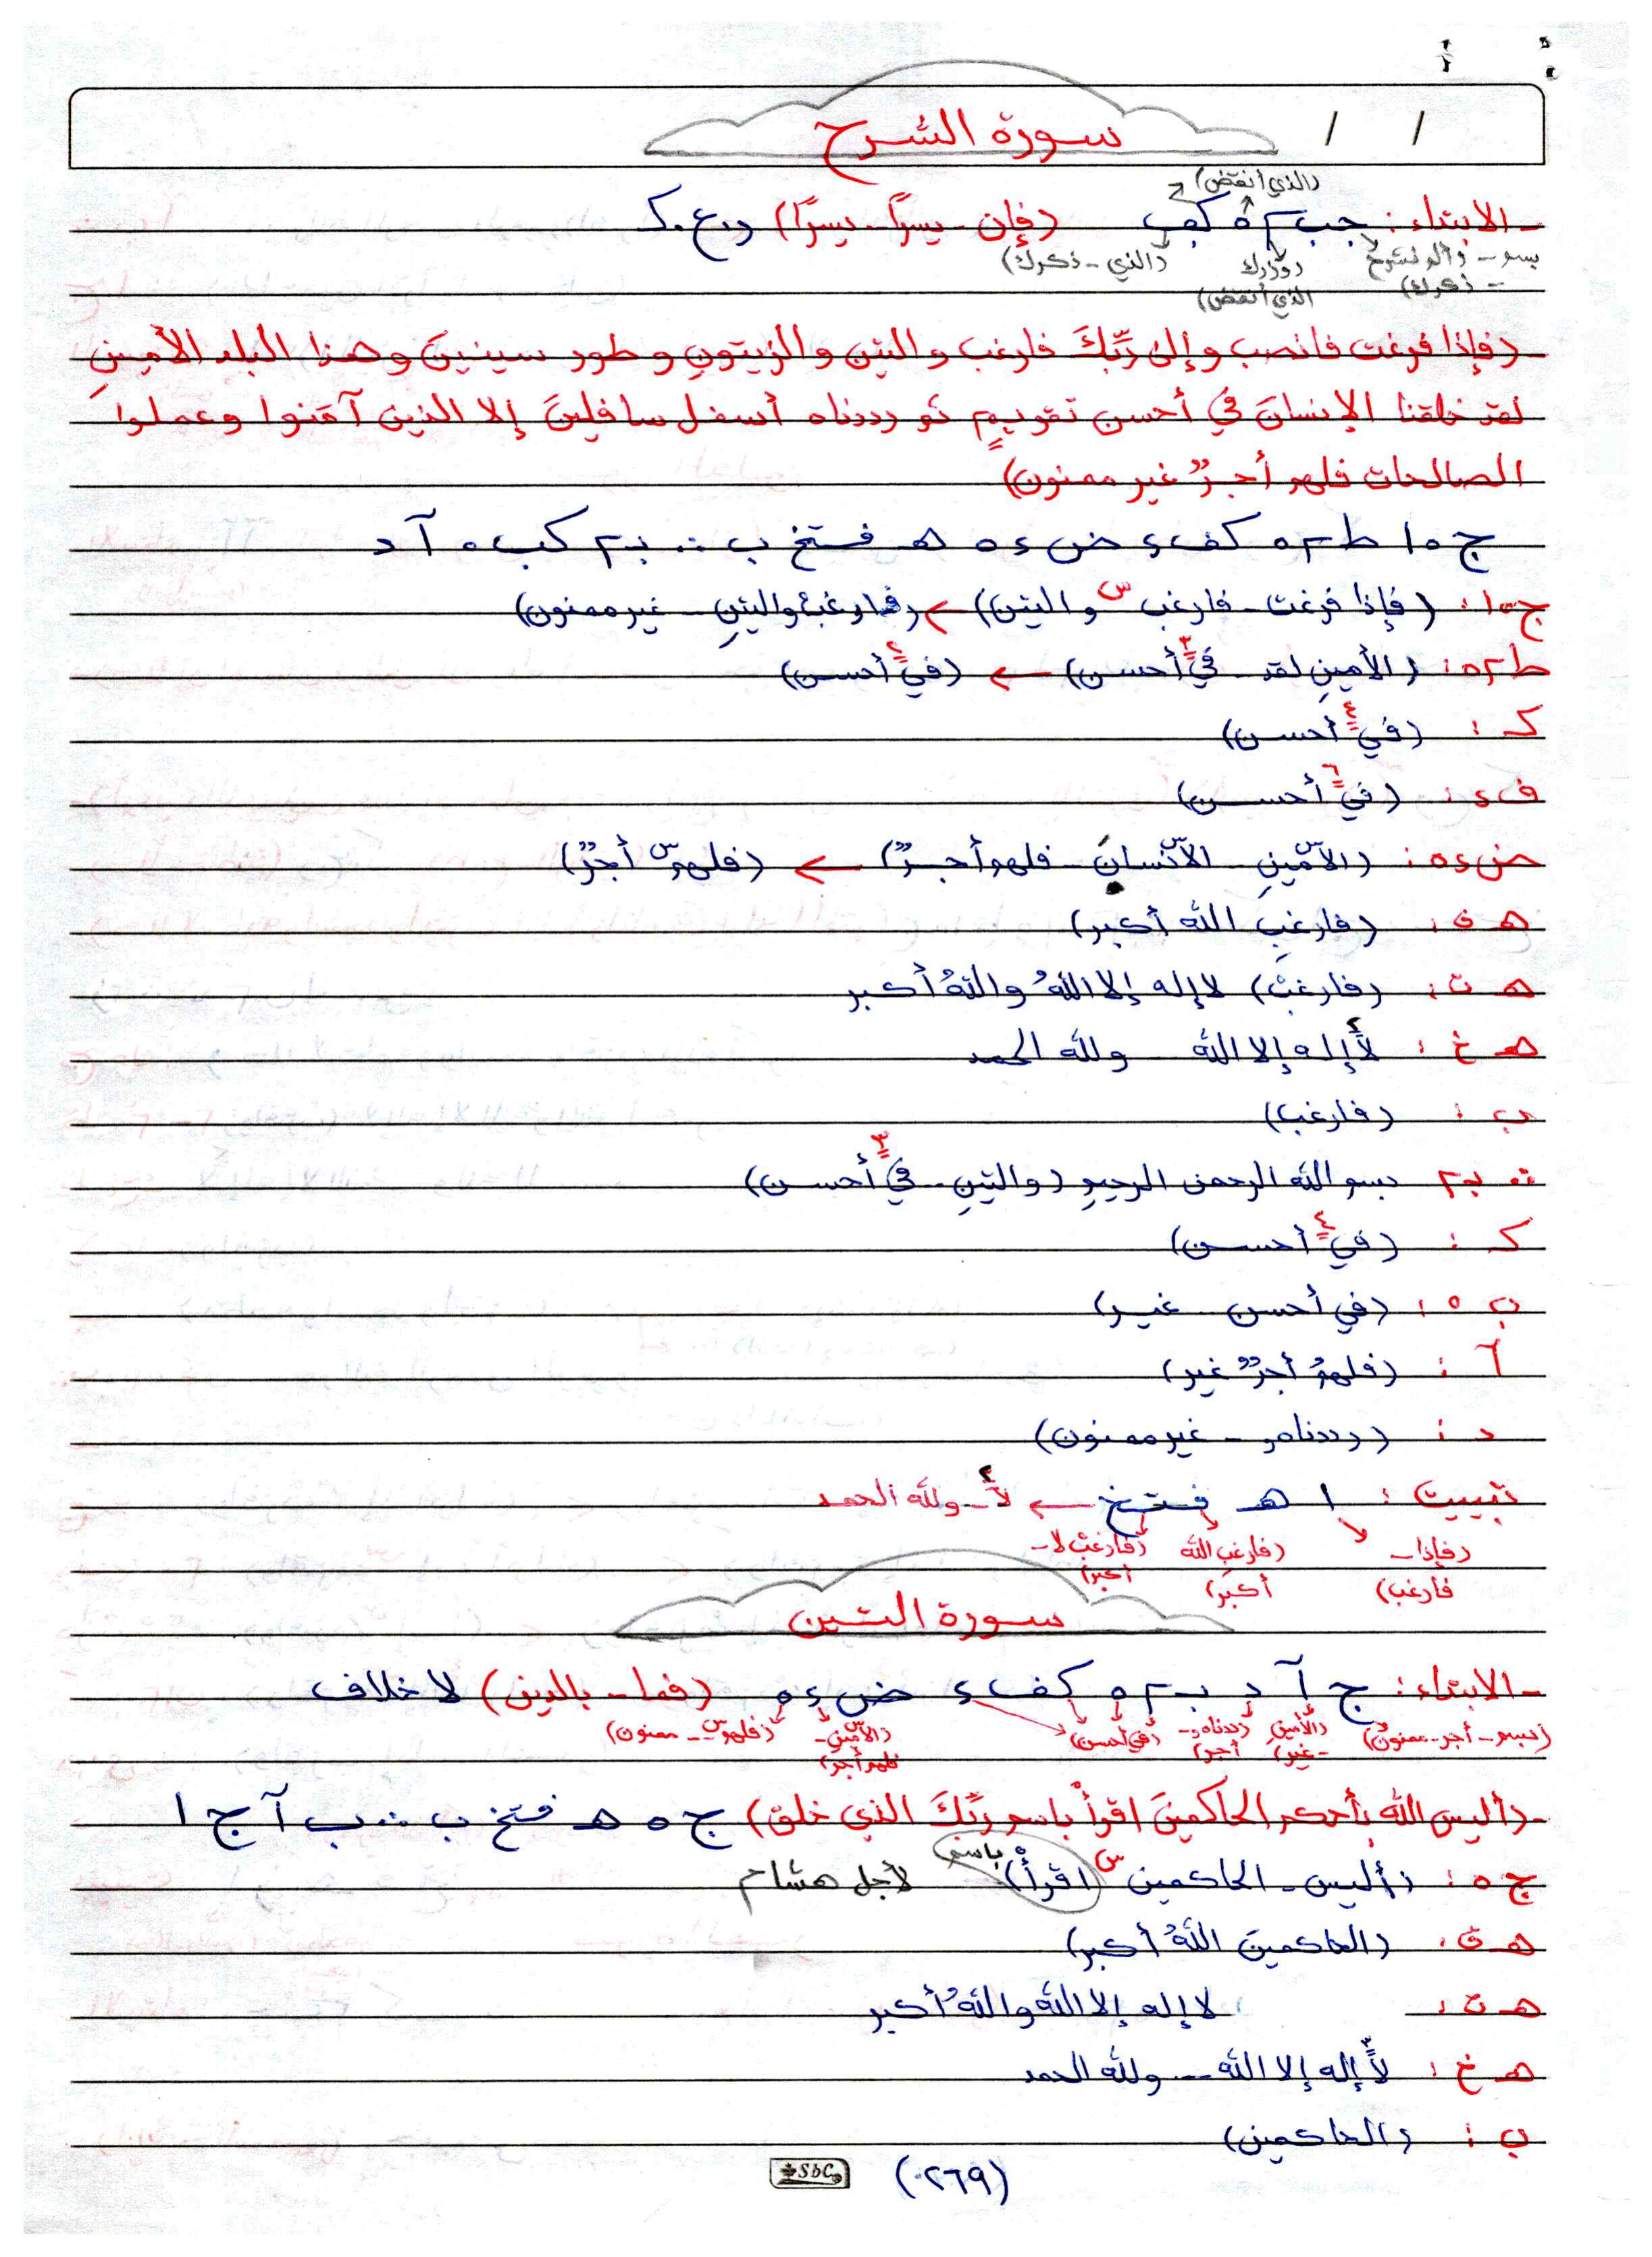 سورة الشرح
(الذي أنقض)
- الابتداء : جب ٢ ٥ كف (فإن - يسراً - يسراً) د.ع.ك
بسم - (ألم نشرح (وزرك (الذي - ذكرك)
- ذكرك) الذي أنقض)
(فإذا فرغت فانصب وإلى ربِّكَ فارغب والتين والزيتونِ وطور سينينَ وهذا البلد الأمينِ
لقد خلقنا الإنسانَ في أحسن تقويمٍ ثم رددناه أسفل سافلينَ إلا الذين آمنوا وعملوا
الصالحات فلهم أجرٌ غير ممنون)
ج ١٥ ط ٢ ٥ كف ٤ ض ٤ ٥ هـ فستخ ب ∴ بـ ٢ كب ٥ آ د
ج ١٥ : (فإذا فرغت - فارغب س والتين) ← (فارغبْ والتينِ - غير ممنون)
ط ٢ ٥ : (الأمينِ لقد - في ٣ أحسن) ← (في ٢ أحسن)
كـ : (في ٤ أحسن)
ف ٤ : (في ٦ أحسن)
ض ٤ ٥ : (الأمينِ - الإنسانَ - فلهم أجرٌ) ← (فلهم س أجرٌ)
هـ ف : (فارغبِ الله أكبر)
هـ ت : (فارغبْ) لا إله إلا اللهُ واللهُ أكبر
هـ خ : لا ٢ إله إلا الله - ولله الحمد
ب : (فارغب)
∴ بـ ٢ بسم الله الرحمن الرحيمِ (والتينِ - في ٣ أحسن)
كـ : (في ٤ أحسن)
ب ٥ : (في أحسن - غير)
آ : (فلهم أجرٌ غير)
د : (رددناه - غير ممنون)
تبييت : ا هـ فستخ ← لا ٢ - ولله الحمد
(فإذا - (فارغب الله (فارغبْ لا -
فارغب) أكبر) أكبر)
سورة التين
- الابتداء : ج آ د بـ ٢ ٥ كف ٤ ض ٤ ٥ (فما - بالدين) لا خلاف
(بسم - أجر - ممنون) (الأمين (رددناه - (في أحسن) (الأمين - (فلهم س - ممنون)
- غير) أجر) فلهم أجر)
- (أليس الله بأحكم الحاكمينَ اقرأْ باسم ربِّكَ الذي خلق) ج ٥ هـ فتخ ب ∴ ب آ ج ا
ج ٥ : (أليس - الحاكمين س اقرأْ) باسم لأجل هشام
هـ ف : (الحاكمينَ اللهُ أكبر)
هـ ت : لا إله إلا الله واللهُ أكبر
هـ خ : لا إله إلا الله - ولله الحمد
ب : (الحاكمين)
(٢٦٩)
SbC